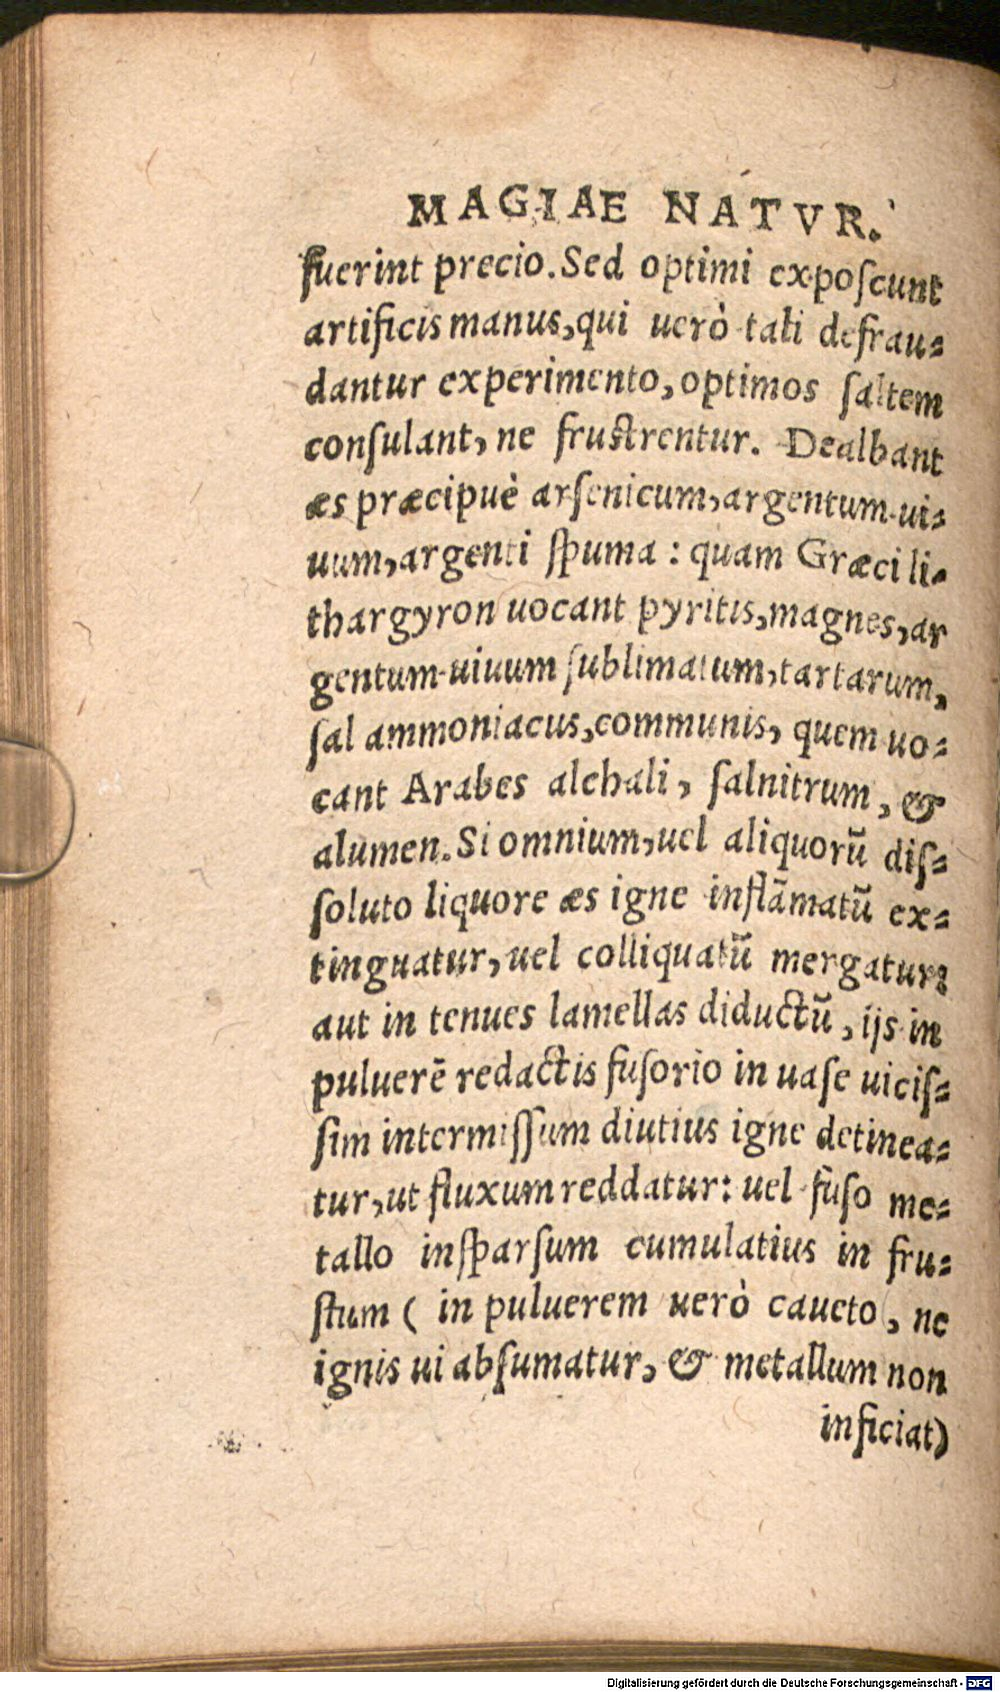 MAGIAE NATVR.
fuerint precio. Sed optimi exposcunt
artificis manus, qui uerò tali defrau-
dantur experimento, optimos saltem
consulant, ne frustrentur. Dealbant
æs præcipuè arsenicum, argentum ui-
uum, argenti spuma: quam Græci li-
thargyron uocant pyritis, magnes, ar
gentum uiuum sublimatum, tartarum,
sal ammoniacus, communis, quem uo-
cant Arabes alchali, salnitrum, &
alumen. Si omnium, uel aliquorũ dis-
soluto liquore æs igne inflãmatũ ex-
tinguatur, uel colliquatũ mergatur:
aut in tenues lamellas diductũ, ijs in
puluerẽ redactis fusorio in uase uicis-
sim intermissum diutius igne detinea-
tur, ut fluxum reddatur: uel fuso me-
tallo insparsum cumulatius in fru-
stum ( in puluerem uerò caueto, ne
ignis ui absumatur, & metallum non
inficiat)
Digitalisierung gefördert durch die Deutsche Forschungsgemeinschaft - DFG